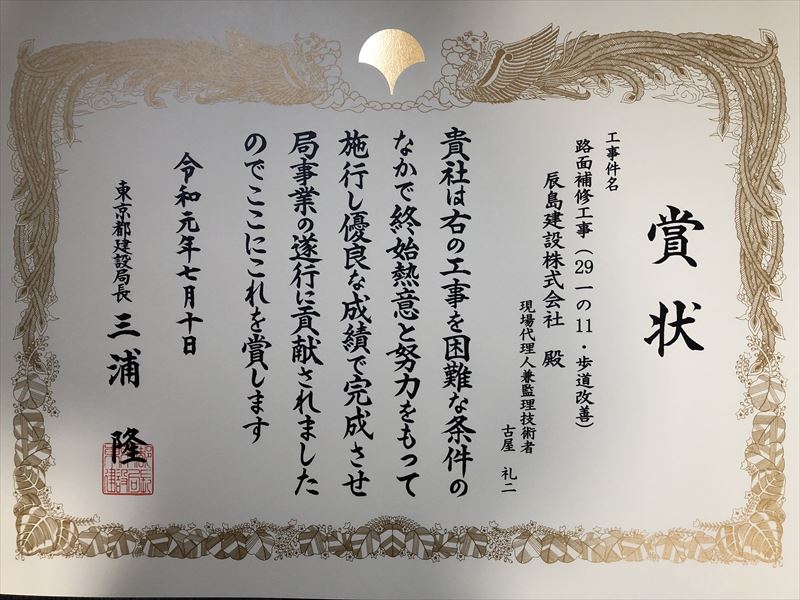 賞状
工事件名
路面補修工事（29一の11・歩道改善）
辰島建設株式会社 殿
現場代理人兼監理技術者
古屋 礼二
貴社は右の工事を困難な条件の
なかで終始熱意と努力をもって
施行し優良な成績で完成させ
局事業の遂行に貢献されました
のでここにこれを賞します
令和元年七月十日
東京都建設局長 三浦 隆